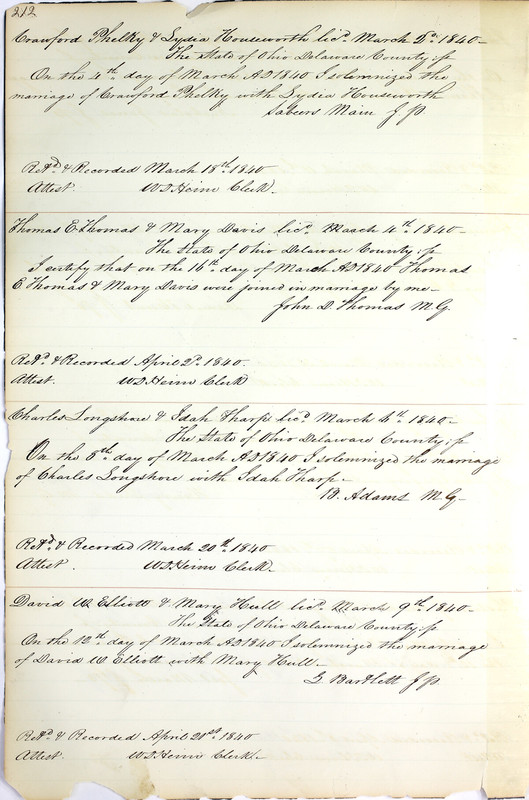 212
Crawford Phelky & Lydia Houseworth licd. March 2d. 1840-
The State of Ohio Delaware County ss
On the 4th day of March AD 1840 I solemnized the
marriage of Crawford Phelky with Lydia Houseworth
Main J.P.
Retd. & Recorded March 18th. 1840
Attest. W.D. Heim Clerk.
Thomas E Thomas & Mary Davis licd. March 4th. 1840-
The State of Ohio Delaware County ss
I certify that on the 16th. day of March AD 1840 Thomas
E Thomas & Mary Davis were joined in marriage by me-
John D. Thomas M.G.
Retd. & Recorded April 2d. 1840.
Attest. W.D. Heim Clerk
Charles Longshore & Idah Tharp licd. March 4th. 1840-
The State of Ohio Delaware County ss
On the 5th. day of March AD 1840 I solemnized the marriage
of Charles Longshore with Idah Tharp-
B. Adams M.G-
Retd. & Recorded March 20th. 1840
Attest. W.D. Heim Clerk.
David W. Elliott & Mary Hull licd. March 9th. 1840-
The State of Ohio Delaware County ss
On the 12th. day of March AD 1840 I solemnized the marriage
of David W Elliott with Mary Hull-
Bartlett J.P.
Retd. & Recorded April 21st. 1840
Attest. W.D. Heim Clerk.